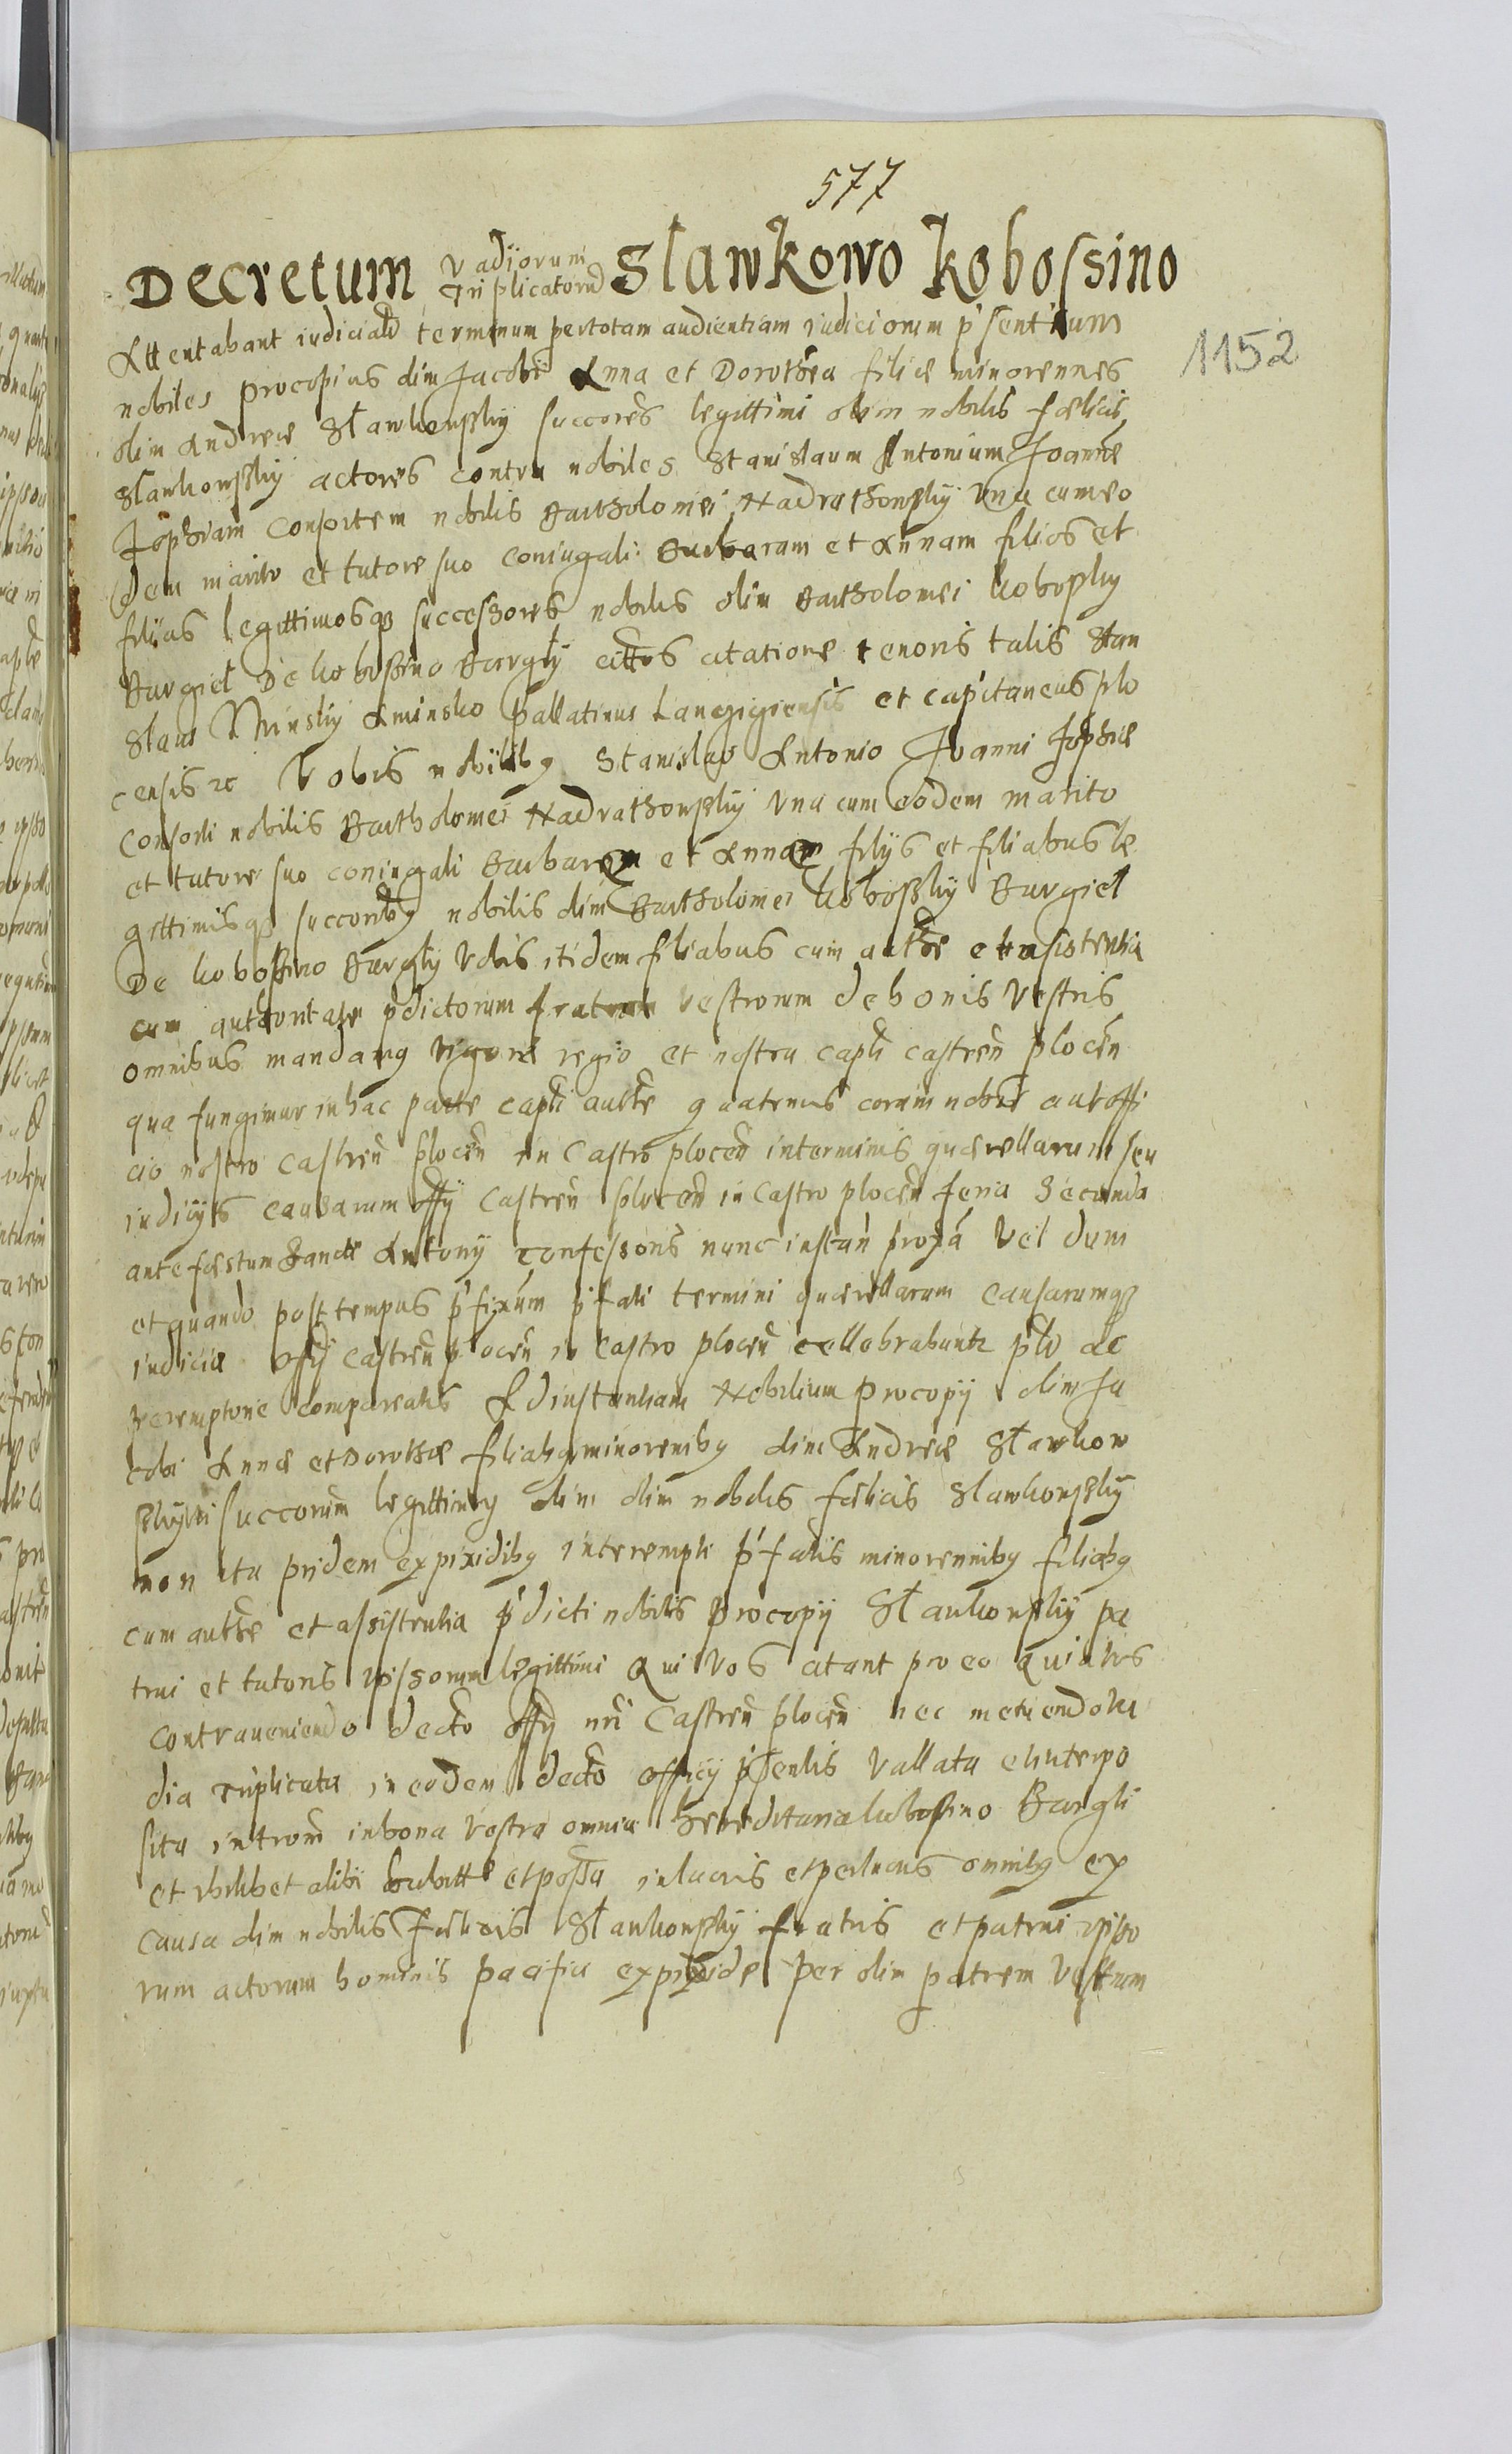 577
Decretum vadiorum triplicatorum Slawkowo Kobossino
1152
Attentabant iudicialr terminum pertotam audientiam iudiciorum p'sentium
nobiles procopius olim Jacobi Anna et Dorothea filiæ minorennes
olim Andreæ Slawkowsky succores legittimi olim nobilis fœlicis
Slawkowsky actores contra nobiles Stanislaum Antonium Joanne
Zophiam consortem nobilis Bartholomei Nadrathowsky una cum eo
dem marito et tutore suo coniugali Barbaram et Annam filios et
filias legittimosq successores nobilis olim Bartholomei kobosky
Bargiel De kobossino Bargly cittos citatione tenoris talis Stan
slaus Minsky Aminsko pallatinus Lancziciensis et capitaneus plo
censis etc Vobis nobilibq Stanislao Antonio Joanni Zophiæ
consorti nobilis Bartholomei Nadrathowsky una cum eodem marito
et tutore suo coniugali Barbaræ et Annæ filys et filiabus le
gittimisq succoribq nobilis olim Bartholomei kobossky Bargiel
De kobossino Bargly vobis itidem filiabus cum autthe et assistentia
cum authoritate pdictorum fratrum vestrorum de bonis vestris
omnibus mandamq vigore regio et nostra capli castren plocen
qua fungimur in hac parte capli autthe quatenus coram nobis aut offi
cio nostro castren plocen in Castro plocen interminis quærellarum seu
iudicys causarum offy Castren plocen in Castro plocen feria Secunda
ante fæstum Sancti Antony confessoris nunc instan proxa vel dum
et quando post tempus p'fixum p'fati termini quærellarum causarumq
iudicia offy castren plocen in Castro plocen cellebrabuntr plr Ac
peremptorie compareatis Ad instantiam Nobilium procopy olim Ja
cobi Annæ et Dorotheæ filiabq minorenibq olim Andreæ Slawkow
succorum legittimq olim olim nobilis fœlicis Slawkowsky
non ita pridem expixidibq interempti p'fatis minorennibq filiabq
cum autthe et assistentia p'dicti nobilis procopy Slawkowsky pa
trui et tutoris ipsorum legittimi Qui Vos citant pro eo Quia vos
contraueniendo decto offy nri Castren plocen nec metuendo va
dia triplicata in eodem decto officy p'sentis vallata et interpo
sita introm in bona vestra omnia hereditaria kobossino Bargli
et ubilibet alibi habitta et possa in lucris et perlucris omnibq ex
causa olim nobilis Fœlicis Slawkowsky fratris et patrui ipso
rum actorum hominis pacifici expixide per olim patrem vestrum